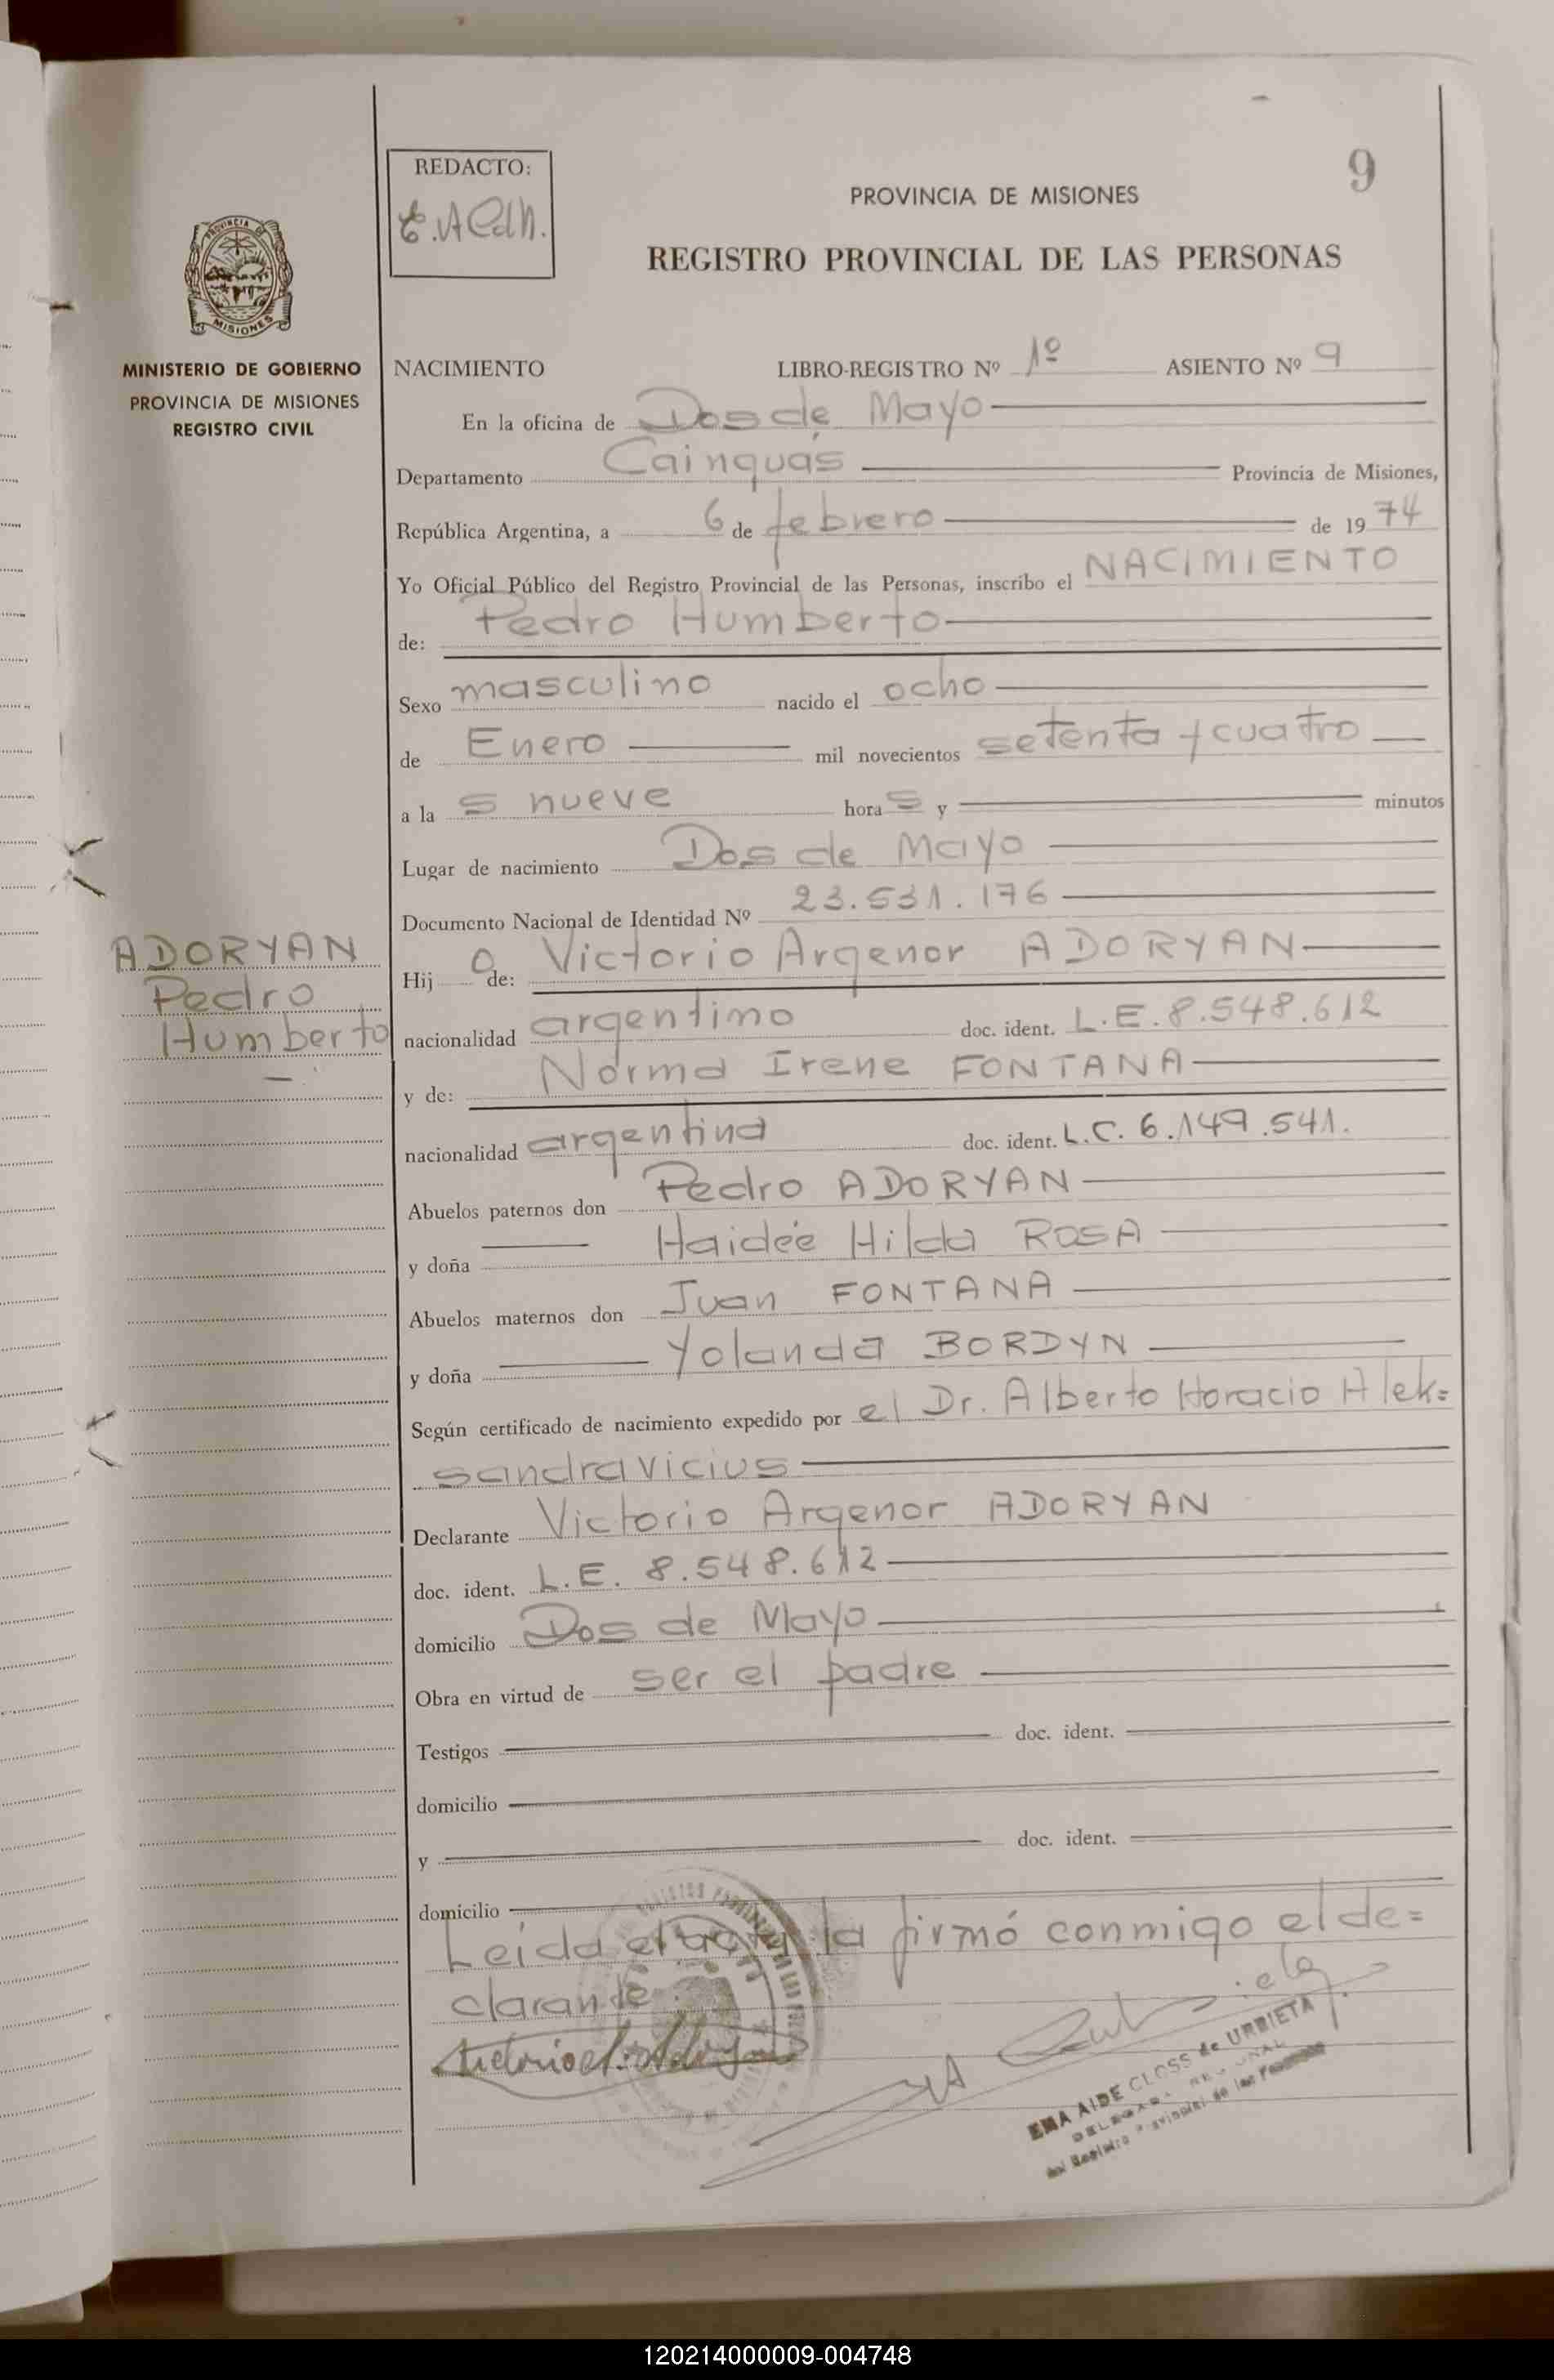 REDACTO:
9
PROVINCIA DE MISIONES
REGISTRO PROVINCIAL DE LAS PERSONAS
PROVINCIA DE
MISIONES
MINISTERIO DE GOBIERNO
PROVINCIA DE MISIONES
REGISTRO CIVIL
NACIMIENTO LIBRO-REGISTRO Nº 1º ASIENTO Nº 9
En la oficina de Dos de Mayo
Departamento Cainguás Provincia de Misiones,
República Argentina, a 6 de febrero de 1974
Yo Oficial Público del Registro Provincial de las Personas, inscribo el NACIMIENTO
de: Pedro Humberto
Sexo masculino nacido el ocho
de Enero mil novecientos setenta y cuatro
a las nueve horas y minutos
Lugar de nacimiento Dos de Mayo
Documento Nacional de Identidad Nº 23.531.176
ADORYAN
Pedro
Humberto
Hijo de: Victorio Argenor ADORYAN
nacionalidad argentino doc. ident. L.E. 8.548.612
y de: Norma Irene FONTANA
nacionalidad argentina doc. ident. L.C. 6.149.541.
Abuelos paternos don Pedro ADORYAN
y doña Haidée Hilda ROSA
Abuelos maternos don Juan FONTANA
y doña Yolanda BORDYN
Según certificado de nacimiento expedido por el Dr. Alberto Horacio Alek=
sandravicius
Declarante Victorio Argenor ADORYAN
doc. ident. L.E. 8.548.612
domicilio Dos de Mayo
Obra en virtud de ser el padre
Testigos doc. ident.
domicilio
y doc. ident.
domicilio
Leída el acta la firmó conmigo el de=
clarante.
EMA AIDE CLOSS de URBIETA
120214000009-004748